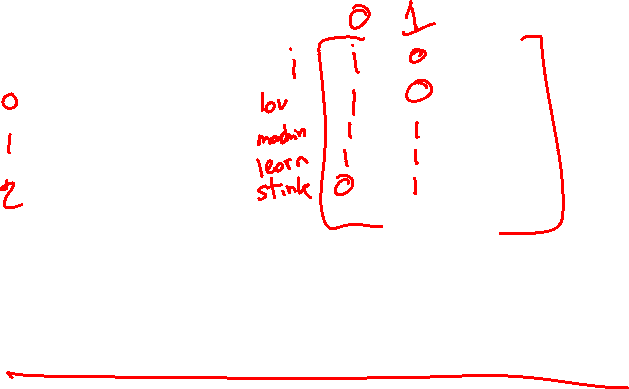 0 1
i i 0
0 lov 1 0
1 machin 1 1
learn 1 1
2 stink 0 1